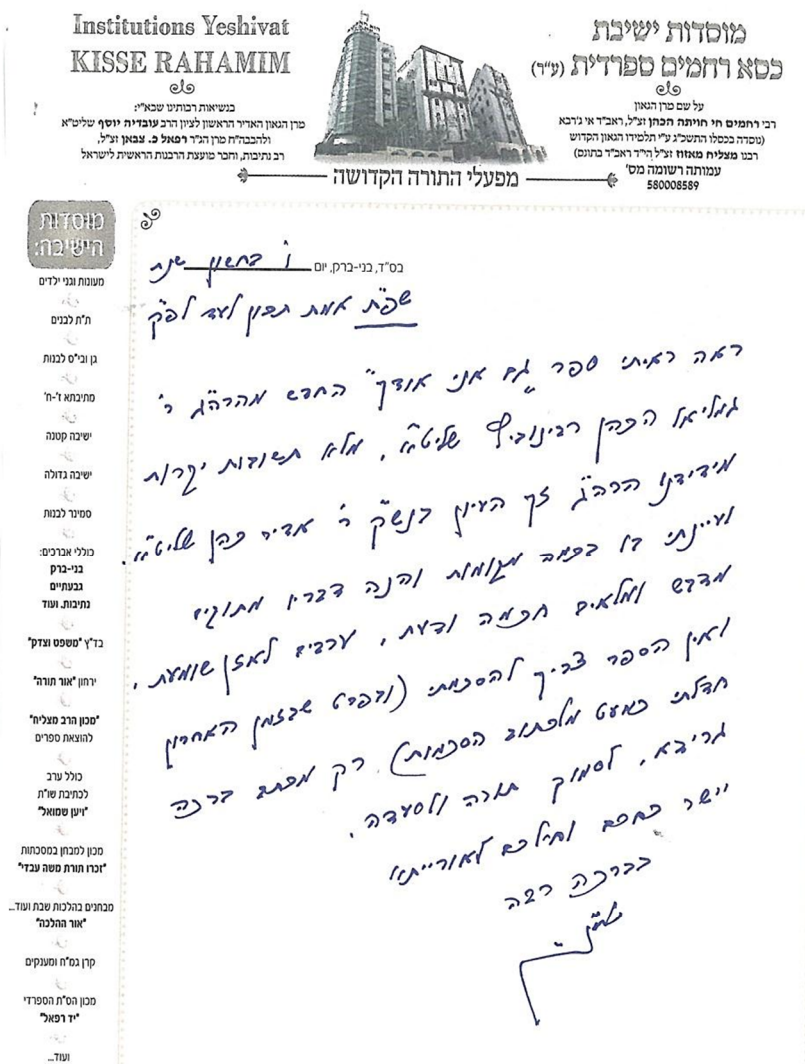 Institutions Yeshivat
KISSE RAHAMIM
מוסדות ישיבת
כסא רחמים ספרדית (ע"ר)
בנשיאות רבותינו שבא"י:
מרן הגאון האדיר הראשון לציון הרב עובדיה יוסף שליט"א
ולהבבה"ח מרן הג"ר רפאל כ. צבאן זצ"ל,
רב נתיבות, וחבר מועצת הרבנות הראשית לישראל
על שם מרן הגאון
רבי רחמים חי חויתה הכהן זצ"ל, ראב"ד אי ג'רבא
(נוסדה בכסלו התשכ"ג ע"י תלמידו הגאון הקדוש
רבנו מצליח מאזוז זצ"ל הי"ד ראב"ד בתונס)
עמותה רשומה מס'
580008589
מפעלי התורה הקדושה
מוסדות
הישיבה:
מעונות וגני ילדים
ת"ת לבנים
גן ובי"ס לבנות
מתיבתא ז'-ח'
ישיבה קטנה
ישיבה גדולה
סמינר לבנות
כוללי אברכים:
בני-ברק
גבעתיים
נתיבות. ועוד
בד"ץ "משפט וצדק"
ירחון "אור תורה"
"מכון הרב מצליח"
להוצאת ספרים
כולל ערב
לכתיבת שו"ת
"ויען שמואל"
מכון למבחן במסכתות
"זכרו תורת משה עבדי"
מבחנים בהלכות שבת ועוד...
"אור ההלכה"
קרן גמ"ח ומענקים
מכון הס"ת הספרדי
"יד רפאל"
ועוד...
בס"ד, בני-ברק, יום ו' בחשון שנת
שפ"ת אמת תכון לעד לפ"ק
ראה ראיתי ספר "גם אני אודך" החדש מהרה"ג ר'
גמליאל הכהן רבינוביץ שליט"א, מלא תשובות יקרות
מידידנו הרה"ג זך העיון בנש"ק ר' אדיר כהן שליט"א.
ועיינתי בו בכמה מקומות והנה דבריו מתוקים
מדבש ומלאים חכמה ודעת, ערבים לאזן שומעת,
ואין הספר צריך להסכמתי (ובפרט שבזמן האחרון
חדלתי כמעט מלכתוב הסכמות) רק מכתב ברכה
גריבא, לסמוך תורה ולסעדה.
יישר כחכם וחילכם לאורייתא
בברכה רבה